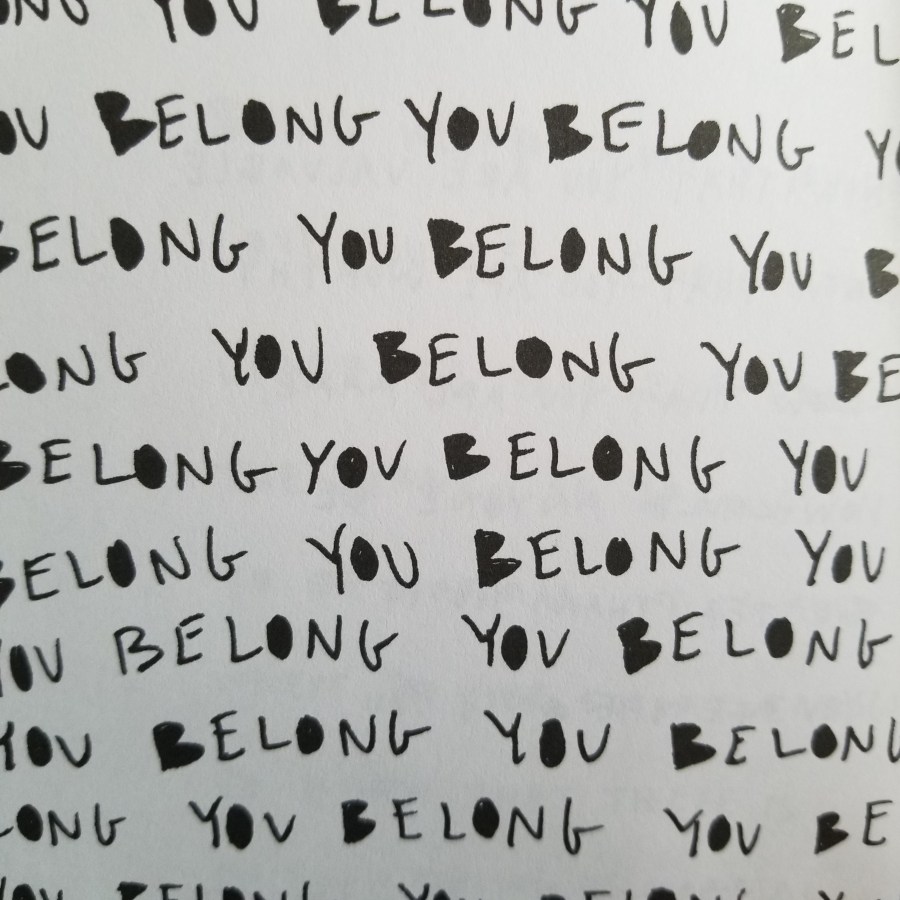 YOU BELONG YOU BEL
OU BELONG YOU BELONG
BELONG YOU BELONG YOU B
LONG YOU BELONG YOU BE
BELONG YOU BELONG YOU
BELONG YOU BELONG YOU
YOU BELONG YOU BELONG
YOU BELONG YOU BELONG
LONG YOU BELONG YOU BE
YOU BELONG YOU BELONG